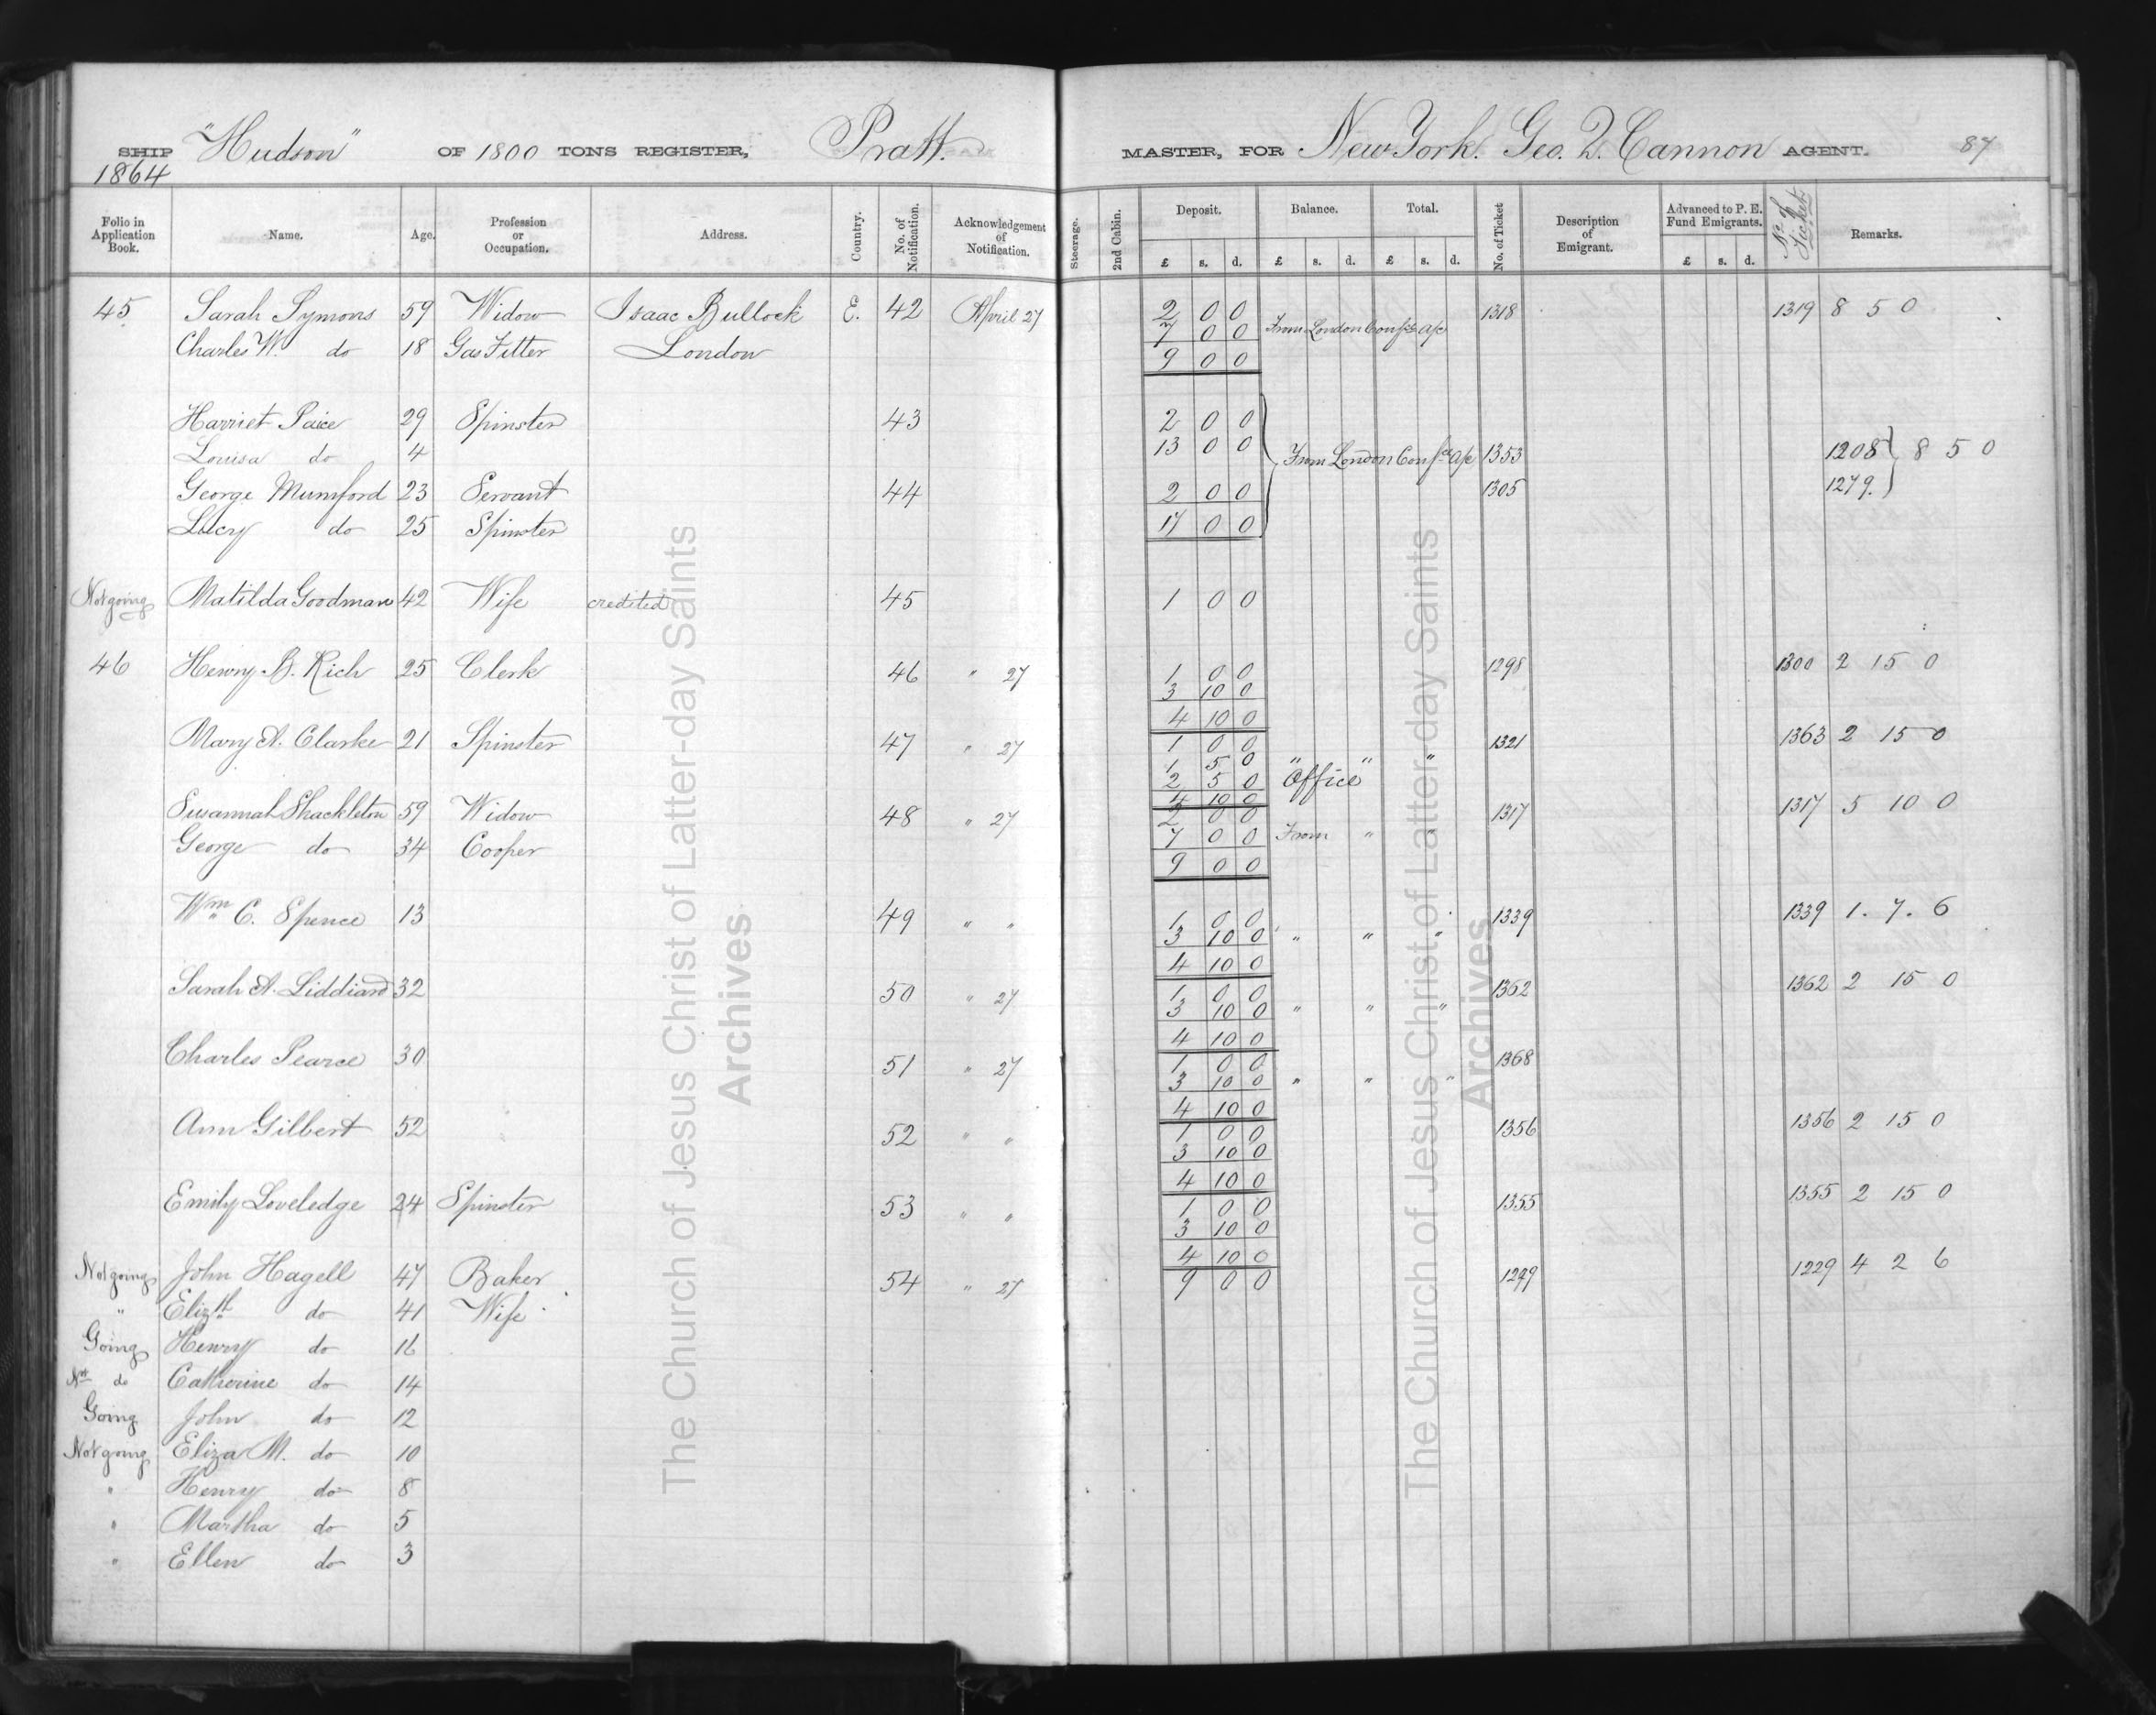 SHIP "Hudson" OF 1800 TONS REGISTER, Pratt. MASTER, FOR New York. Geo. Q. Cannon AGENT. 87
1864
Folio in Application Book. Name. Age. Profession or Occupation. Address. Country. No. of Notification. Acknowledgement of Notification. Steerage. 2nd Cabin. Deposit. Balance. Total. No. of Ticket Description of Emigrant. Advanced to P. E. Fund Emigrants. No. of Ticket Remarks.
£ s. d. £ s. d. £ s. d. £ s. d.
45 Sarah Symons 59 Widow Isaac Bullock E. 42 April 27 2 0 0 1318 1319 8 5 0
7 0 0 From London Confce a/c
Charles W. do 18 Gas Fitter London 9 0 0
Harriet Paice 29 Spinster 43 2 0 0
Louisa do 4 13 0 0 From London Confce a/c 1353 1208 8 5 0
George Mumford 23 Servant 44 2 0 0 1305 1279.
Lucy do 25 Spinster 17 0 0
Not going Matilda Goodman 42 Wife credited 45 1 0 0
46 Henry B. Rich 25 Clerk 46 " 27 1 0 0 1298 1300 2 15 0
3 10 0
4 10 0
Mary A. Clarke 21 Spinster 47 " 27 1 0 0 1321 1363 2 15 0
1 5 0 " " "
2 5 0 Office
4 10 0
Susannah Shackleton 59 Widow 48 " 27 2 0 0 1317 1317 5 10 0
George do 34 Cooper 7 0 0 From " "
9 0 0
Wm C. Spence 13 49 " " 1 0 0 1339 1339 1. 7. 6
3 10 0 " " "
4 10 0
Sarah A. Liddiard 32 50 " 27 1 0 0 1362 1362 2 15 0
3 10 0 " " "
4 10 0
Charles Pearce 30 51 " 27 1 0 0 1368
3 10 0 " " "
4 10 0
Ann Gilbert 52 52 " " 1 0 0 1356 1356 2 15 0
3 10 0
4 10 0
Emily Loveledge 24 Spinster 53 " " 1 0 0 1355 1355 2 15 0
3 10 0
4 10 0
Not going John Hagell 47 Baker 54 " 27 9 0 0 1299 1229 4 2 6
" Elizth do 41 Wife
Going Henry do 16
Not do Catherine do 14
Going John do 12
Not going Eliza M. do 10
" Henry do 8
" Martha do 5
" Ellen do 3
The Church of Jesus Christ of Latter-day Saints
Archives
The Church of Jesus Christ of Latter-day Saints
Archives